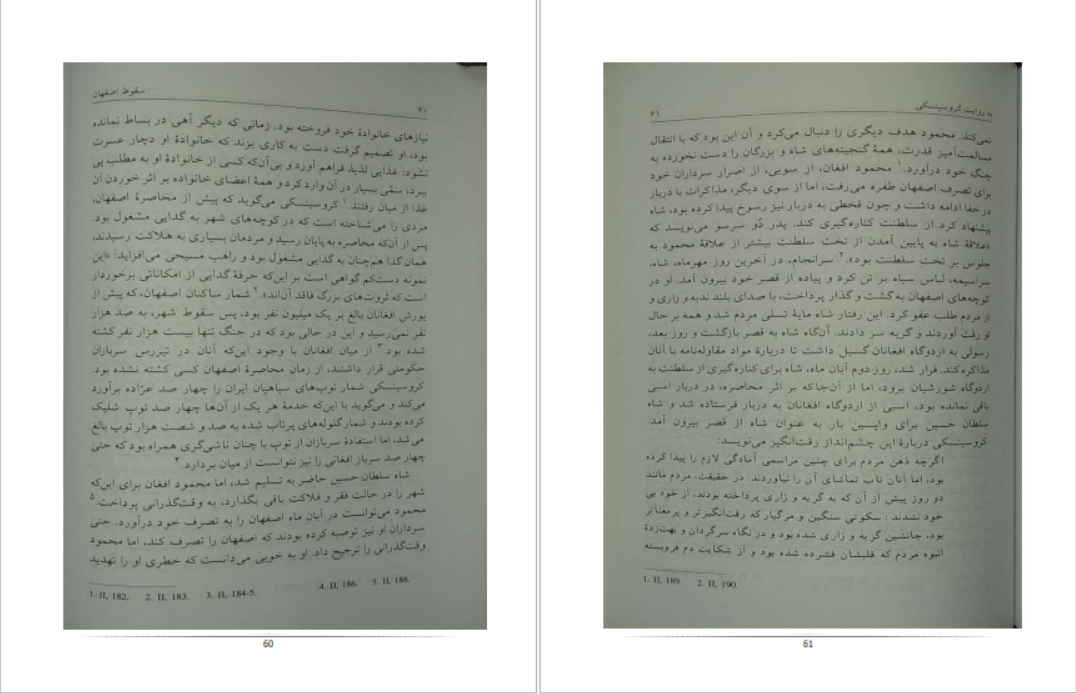 ۶۰
سقوط اصفهان
نیازهای خانوادهٔ خود فروخته بود. زمانی که دیگر آهی در بساط نمانده
بود، او تصمیم گرفت دست به کاری بزند که خانوادهٔ او دچار عسرت
نشود: غذایی لذیذ فراهم آورد و بی‌آن‌که کسی از خانوادهٔ او به مطلب پی
ببرد، سمّی بسیار در آن وارد کرد و همهٔ اعضای خانواده بر اثر خوردن آن
غذا از میان رفتند.۱ کروسینسکی می‌گوید که پیش از محاصرهٔ اصفهان،
مردی را می‌شناخته است که در کوچه‌های شهر به گدایی مشغول بود.
پس از آن‌که محاصره به پایان رسید و مردمان بسیاری به هلاکت رسیدند،
همان گدا هم‌چنان به گدایی مشغول بود و راهب مسیحی می‌افزاید: «این
نمونه دست‌کم گواهی است بر این‌که حرفهٔ گدایی از امکاناتی برخوردار
است که ثروت‌های بزرگ فاقد آن‌اند».۲ شمار ساکنان اصفهان، که پیش از
یورش افغانان بالغ بر یک میلیون نفر بود، پس سقوط شهر، به صد هزار
نفر نمی‌رسید و این در حالی بود که در جنگ تنها بیست هزار نفر کشته
شده بود.۳ از میان افغانان با وجود این‌که آنان در تیررس سربازان
حکومتی قرار داشتند، از زمان محاصرهٔ اصفهان کسی کشته نشده بود.
کروسینسکی شمار توپ‌های سپاهیان ایران را چهار صد عرّاده برآورد
می‌کند و می‌گوید با این‌که خدمهٔ هر یک از آن‌ها چهار صد توپ شلیک
کرده بودند و شمار گلوله‌های پرتاب شده به صد و شصت هزار توپ بالغ
می‌شد، اما استفادهٔ سربازان از توپ با چنان ناشی‌گری همراه بود که حتی
چهار صد سرباز افغانی را نیز نتوانست از میان بردارد.۴
شاه سلطان حسین حاضر به تسلیم شد، اما محمود افغان برای این‌که
شهر را در حالت فقر و فلاکت باقی بگذارد، به وقت‌گذرانی پرداخت.۵
محمود می‌توانست در آبان ماه اصفهان را به تصرف خود درآورد. حتیٰ
سرداران او نیز توصیه کرده بودند که اصفهان را تصرف کند، اما محمود
وقت‌گذرانی را ترجیح داد. او به خوبی می‌دانست که خطری او را تهدید
1. II, 182. 2. II, 183. 3. II, 184-5. 4. II, 186. 5. II, 188.
60
به روایت کروسینسکی
۶۱
نمی‌کند. محمود هدف دیگری را دنبال می‌کرد و آن این بود که با انتقال
مسالمت‌آمیز قدرت، همهٔ گنجینه‌های شاه و بزرگان را دست نخورده به
چنگ خود درآورد.۱ محمود افغان، از سویی، از اصرار سرداران خود
برای تصرف اصفهان طفره می‌رفت، اما از سوی دیگر، مذاکرات با دربار
در خفا ادامه داشت و چون قحطی به دربار نیز رسوخ پیدا کرده بود، شاه
پیشنهاد کرد از سلطنت کناره‌گیری کند. پدر دُو سرسو می‌نویسد که
«علاقهٔ شاه به پایین آمدن از تخت سلطنت بیشتر از علاقهٔ محمود به
جلوس بر تخت سلطنت بود».۲ سرانجام، در آخرین روز مهرماه، شاه،
سراسیمه، لباس سیاه بر تن کرد و پیاده از قصر خود بیرون آمد. او در
کوچه‌های اصفهان به گشت و گذار پرداخت، با صدای بلند ندبه و زاری و
از مردم طلب عفو کرد. این رفتار شاه مایهٔ تسلی مردم شد و همه بر حال
او رقت آوردند و گریه سر دادند. آن‌گاه شاه به قصر بازگشت و روز بعد،
رسولی به اردوگاه افغانان گسیل داشت تا دربارهٔ مواد مقاوله‌نامه با آنان
مذاکره کند. قرار شد، روز دوم آبان ماه، شاه برای کناره‌گیری از سلطنت به
اردوگاه شورشیان برود، اما از آن‌جا که بر اثر محاصره، در دربار اسبی
باقی نمانده بود، اسبی از اردوگاه افغانان به دربار فرستاده شد و شاه
سلطان حسین برای واپسین بار به عنوان شاه از قصر بیرون آمد.
کروسینسکی دربارهٔ این چشم‌انداز رقت‌انگیز می‌نویسد:
اگرچه ذهن مردم برای چنین مراسمی آمادگی لازم را پیدا کرده
بود، اما آنان تاب تماشای آن را نیاوردند. در حقیقت، مردم مانند
دو روز پیش از آن که به گریه و زاری پرداخته بودند، از خود بی
خود نشدند: سکوتی سنگین و مرگبار که رقت‌انگیزتر و پرمعناتر
بود، جانشین گریه و زاری شده بود و در نگاه سرگردان و بهت‌زدهٔ
انبوه مردم که قلبشان فشرده شده بود و از شکایت دم فروبسته
1. II, 189. 2. II, 190.
61